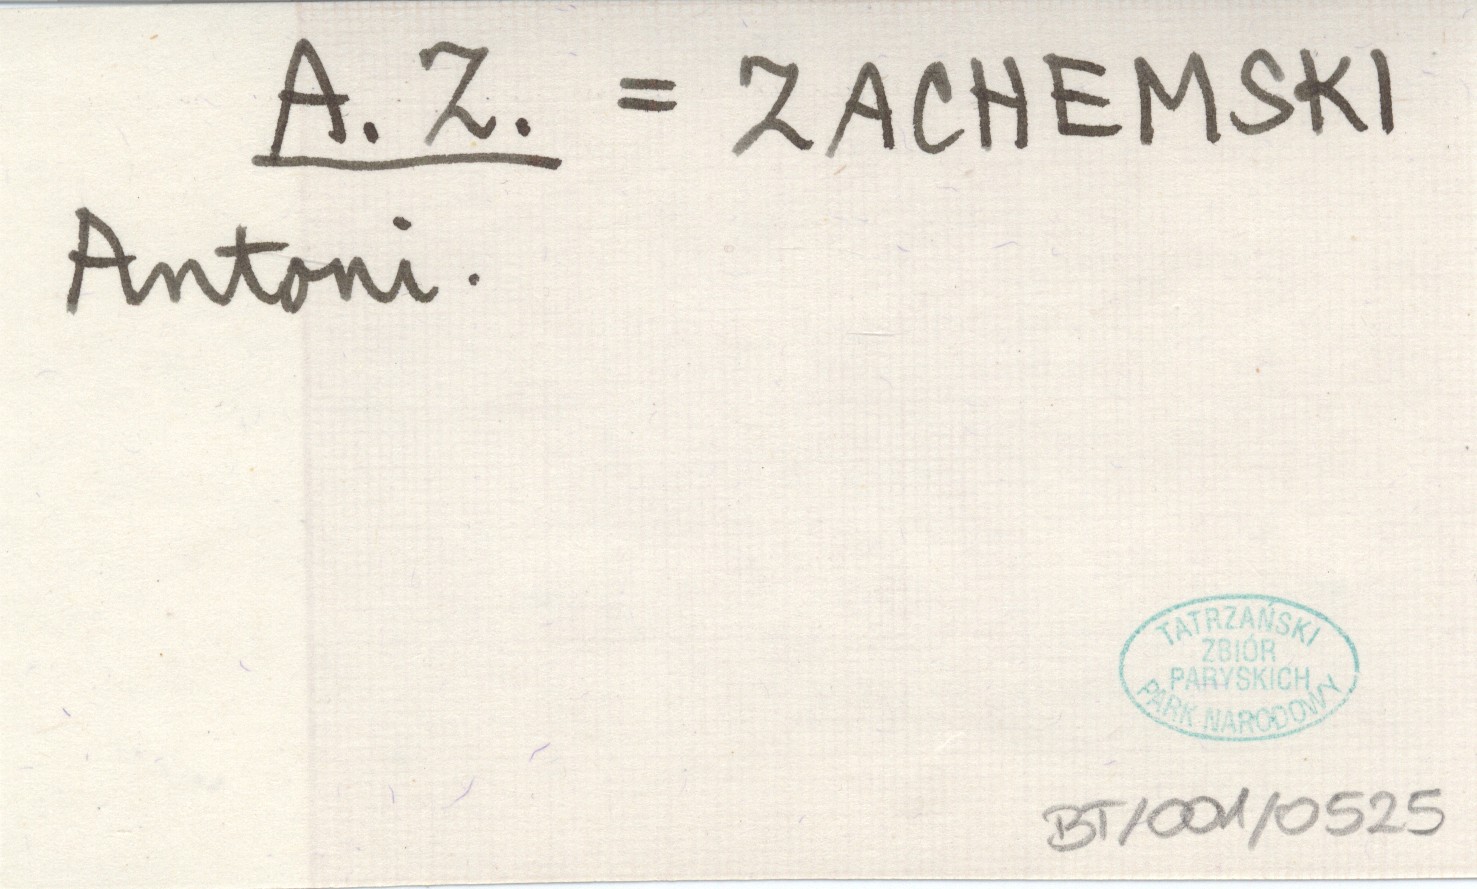 A. Z. = ZACHEMSKI
Antoni.
TATRZAŃSKI
ZBIÓR
PARYSKICH
PARK NARODOWY
BT/001/0525